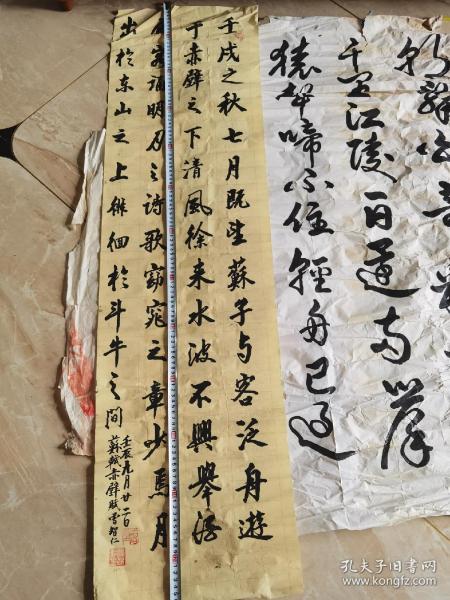 壬戌之秋七月既望蘇子与客泛舟遊
于赤壁之下清風徐来水波不興舉酒
客誦明月之詩歌窈窕之章少焉月
出於东山之上徘徊於斗牛之間
壬辰九月廿二日
蘇軾赤壁賦雪智仁
朝辞白帝彩
千里江陵一日還两岸
猿聲啼不住輕舟已过
孔夫子旧书网